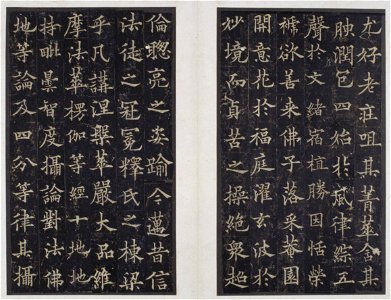 尤好老莊咀其菁華含其
腴潤包四始於風律綜五
聲於文緒宿植勝因恬榮
褫欲善來佛子落采菴園
開意花於福庭濯玄波於
妙境而貞苦之操絕衆超
倫聰亮之姿踰今邁昔信
法徒之冠冕釋氏之棟梁
乎凡講涅槃華嚴大品維
摩法華楞伽等經十地地
持毗曇智度攝論對法佛
地等論及四分等律其攝